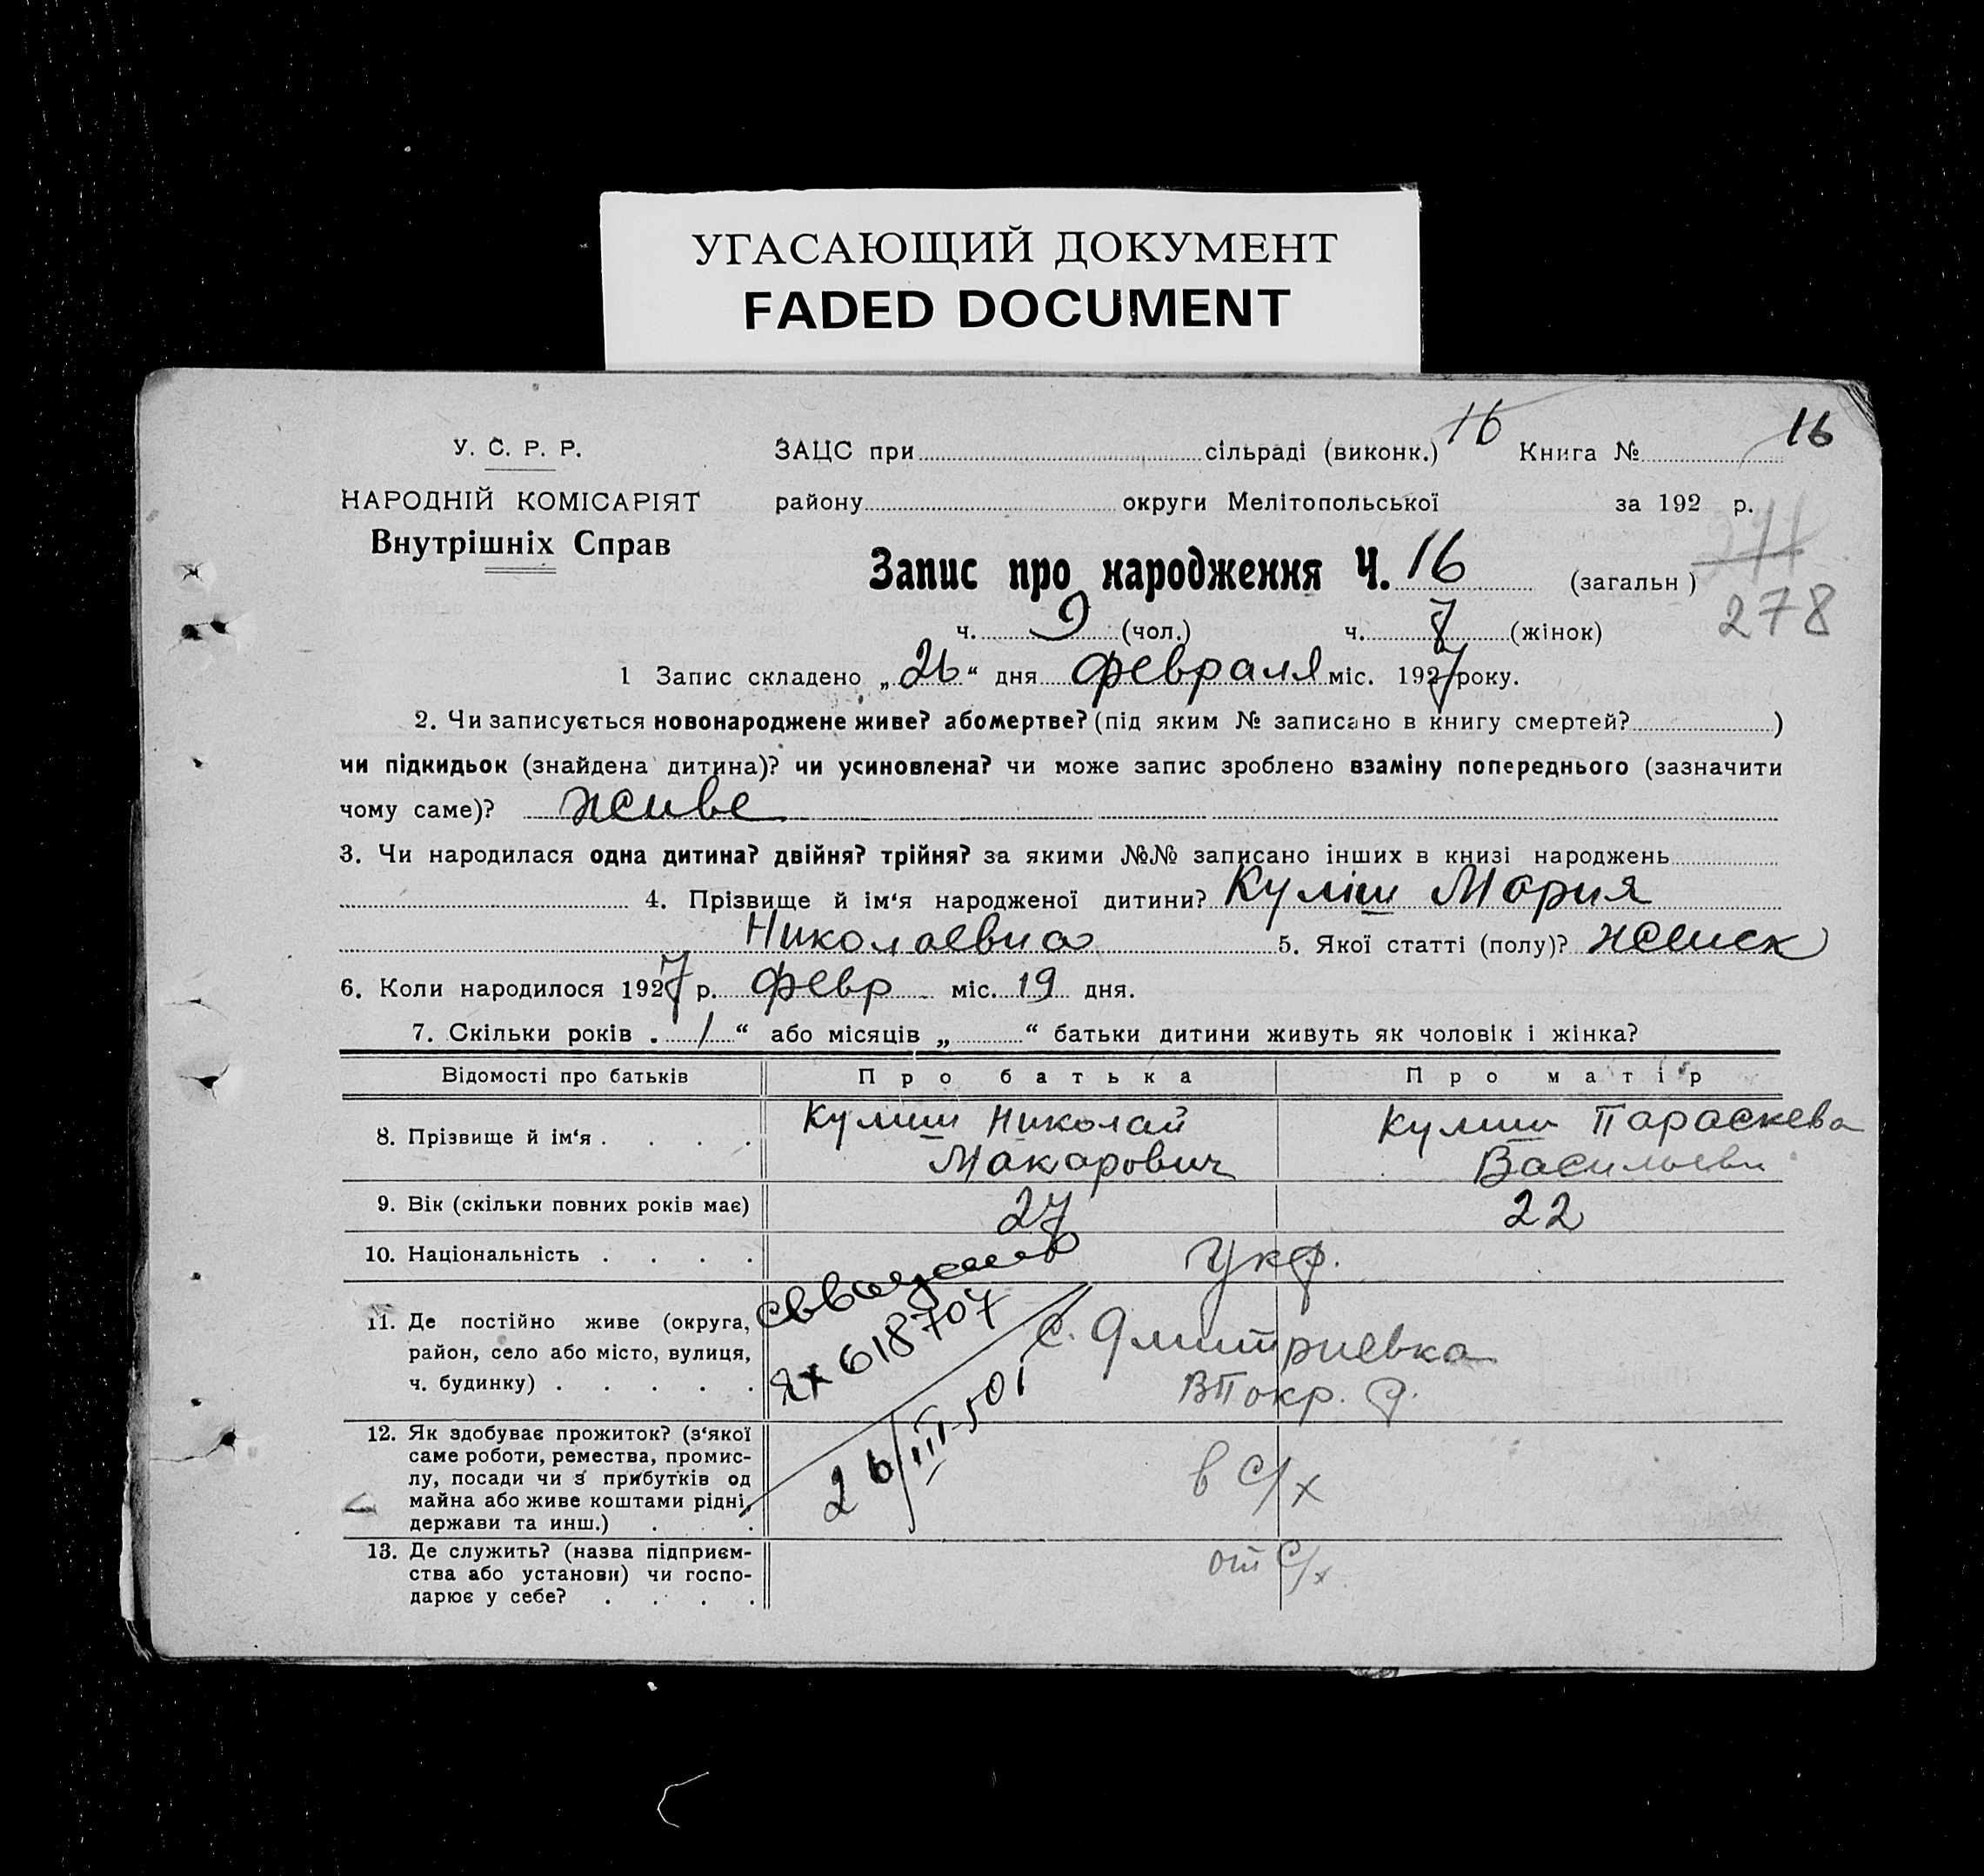 УГАСАЮЩИЙ ДОКУМЕНТ
FADED DOCUMENT
У. С. Р. Р.
НАРОДНІЙ КОМІСАРІЯТ
Внутрішніх Справ
ЗАЦС при сільраді (виконк.) 16 Книга № 16
району округи Мелітопольської за 192 р.
Запис про народження Ч. 16 (загальн)
278
ч. 9 (чол.) ч. 7 (жінок)
1 Запис складено „26“ дня февраля міс. 1927 року.
2. Чи записується новонароджене живе? або мертве? (під яким № записано в книгу смертей? )
чи підкидьок (знайдена дитина)? чи усиновлена? чи може запис зроблено взаміну попереднього (зазначити
чому саме)? живе
3. Чи народилася одна дитина? двійня? трійня? за якими №№ записано інших в книзі народжень
4. Прізвище й ім‘я народженої дитини? Куліш Мария
Николаевна 5. Якої статті (полу)? женск
6. Коли народилося 1927 р. февр міс. 19 дня.
7. Скільки років . 1 “ або місяців „ “ батьки дитини живуть як чоловік і жінка?
Відомості про батьків Про батька Про матір
8. Прізвище й ім‘я . . . . Кулиш Николай Макарович Кулиш Параскева Васильевн
9. Вік (скільки повних років має) 27 22
10. Національність . . . . Укр.
11. Де постійно живе (округа,
район, село або місто, вулиця,
ч. будинку) . . . . .
с. Дмитриевка
ВПокр. р.
618707
26/III-50
12. Як здобуває прожиток? (з‘якої
саме роботи, ремества, промис-
лу, посади чи з прибутків од
майна або живе коштами рідні,
держави та инш.) . . .
в с/х
13. Де служить? (назва підприєм-
ства або установи) чи госпо-
дарює у себе? . . . .
от с/х